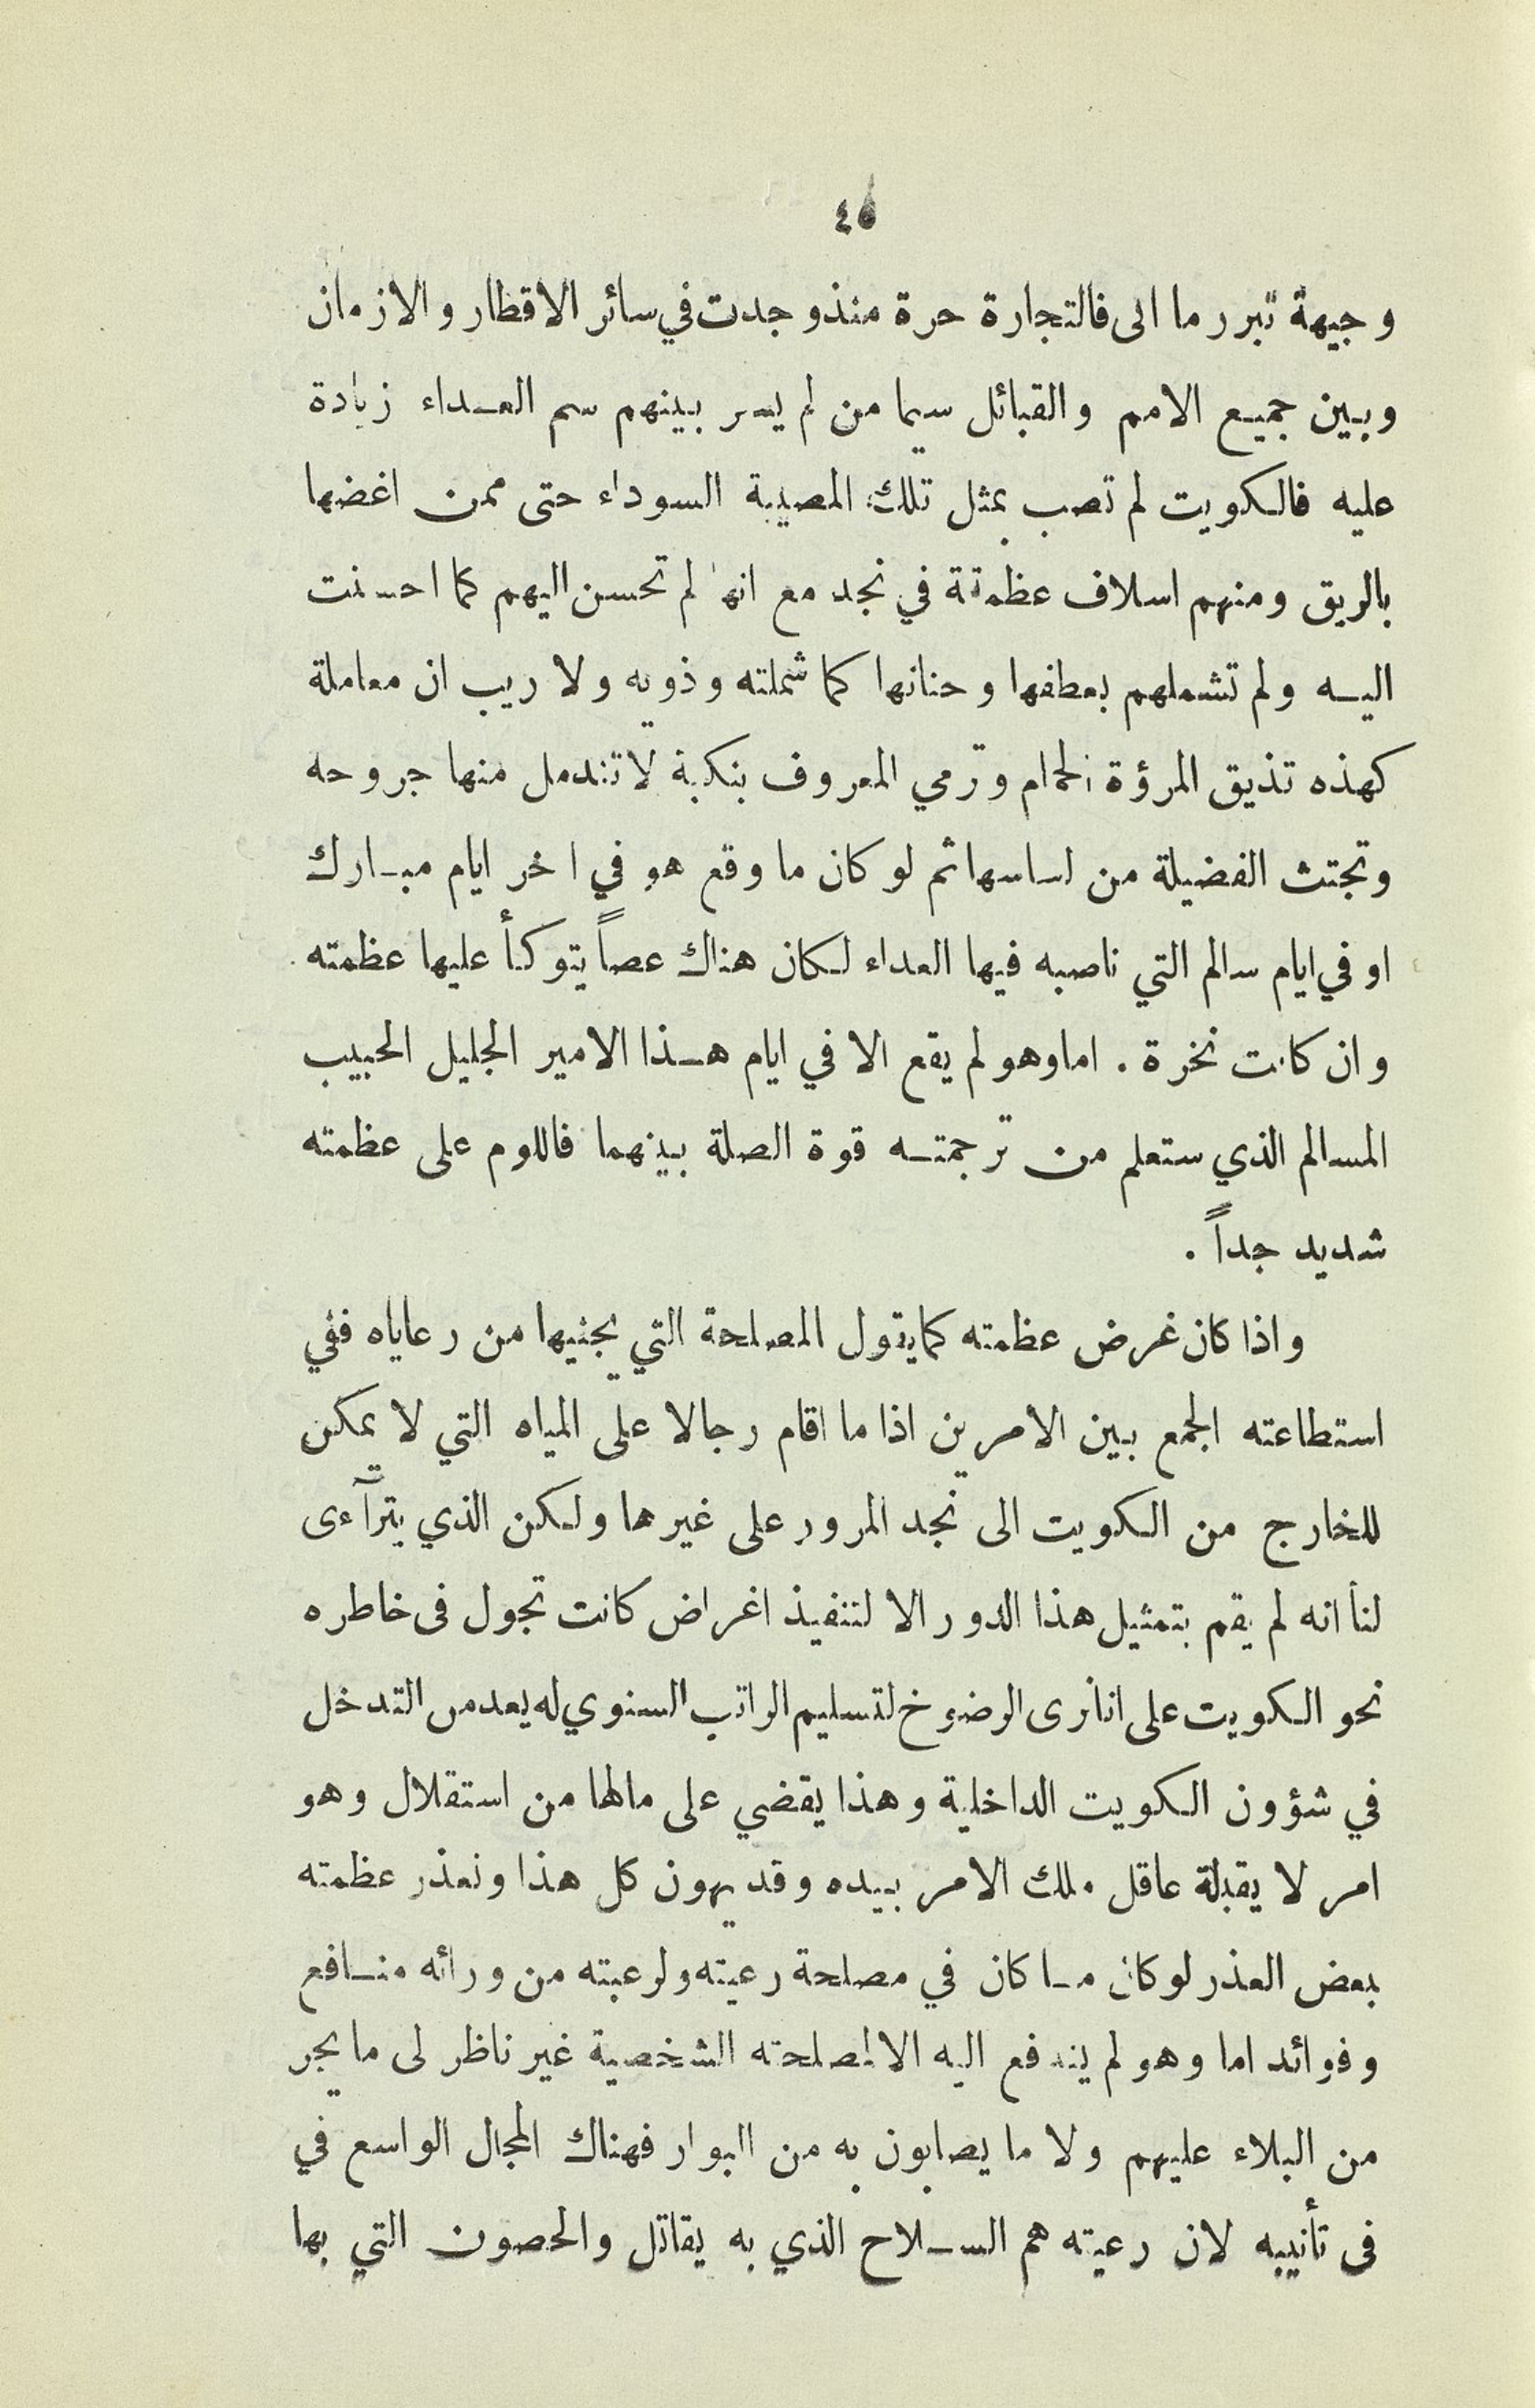 ٤٥
وجيهة تبرر ما اتى فالتجارة حرة منذ وجدت في سائر الاقطار والازمان
وبين جميع الامم والقبائل سيما من لم يسر بينهم سم العداء زيادة
عليه فالكويت لم تصب بمثل تلك المصيبة السوداء حتى ممن اغضها
بالريق ومنهم اسلاف عظمتة في نجد مع انها لم تحسن اليهم كما احسنت
اليه ولم تشملهم بعطفها وحنانها كما شملته وذويه ولا ريب ان معاملة
كهذه تذيق المرؤة الحمام وترمي المعروف بنكبة لا تندمل منها جروحه
وتجتث الفضيلة من اساسها ثم لو كان ما وقع هو في اخر ايام مبارك
او في ايام سالم التي ناصبه فيها العداء لكان هناك عصاً يتوكأ عليها عظمته
وان كانت نخرة . اما وهو لم يقع الا في ايام هذا الامير الجليل الحبيب
المسالم الذي ستعلم من ترجمته قوة الصلة بينهما فاللوم على عظمته
شديد جداً .
واذا كان غرض عظمته كما يقول المصلحة التي يجنيها من رعاياه ففي
استطاعته الجمع بين الامرين اذا ما اقام رجالا على المياه التي لا يمكن
للخارج من الكويت الى نجد المرور على غيرها ولكن الذي يترآءى
لنا انه لم يقم بتمثيل هذا الدور الا لتنفيذ اغراض كانت تجول فى خاطره
نحو الكويت على انا نرى الرضوخ لتسليم الراتب السنوي له يعد من التدخل
في شؤون الكويت الداخلية وهذا يقضي على مالها من استقلال وهو
امر لا يقبلة عاقل ملك الامر بيده وقد يهون كل هذا ونعذر عظمته
بعض العذر لو كان ما كان في مصلحة رعيته ولرعيته من ورائه منافع
وفوائد اما وهو لم يندفع اليه الا لمصلحته الشخصية غير ناظر لى ما يجر
من البلاء عليهم ولا ما يصابون به من البوار فهناك المجال الواسع في
فى تأنيبه لان رعيته هم السلاح الذي به يقاتل والحصون التي بها